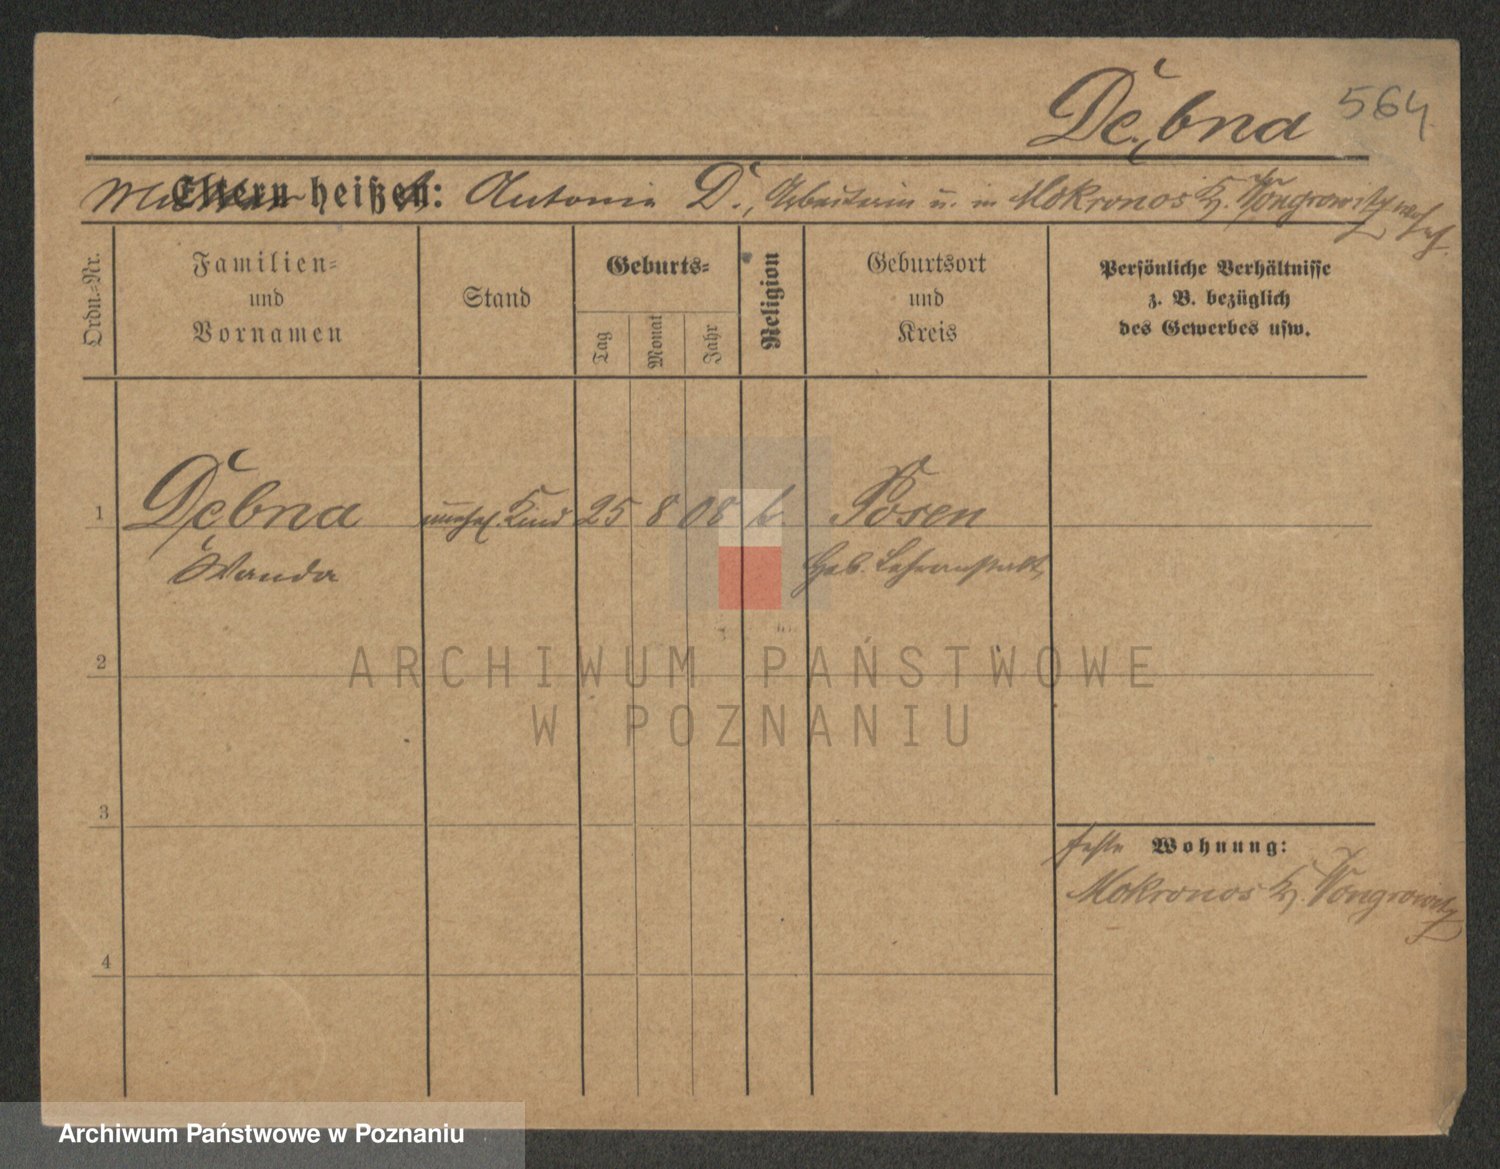 Dębna 564
Mutter Eltern heißen: Antonie D., Arbeiterin u. in Mokronos Kr. Wongrowitz
Ordn.-Nr.
Familien-
und
Vornamen
Stand
Geburts-
Tag
Monat
Jahr
Religion
Geburtsort
und
Kreis
Persönliche Verhältnisse
z. B. bezüglich
des Gewerbes usw.
1 Dębna unehel. Kind 25 8 08 k. Posen
Wanda Heb. Lehranstalt
2
ARCHIWUM PAŃSTWOWE
W POZNANIU
3
Wohnung:
Mokronos Kr. Wongrowitz
4
Archiwum Państwowe w Poznaniu